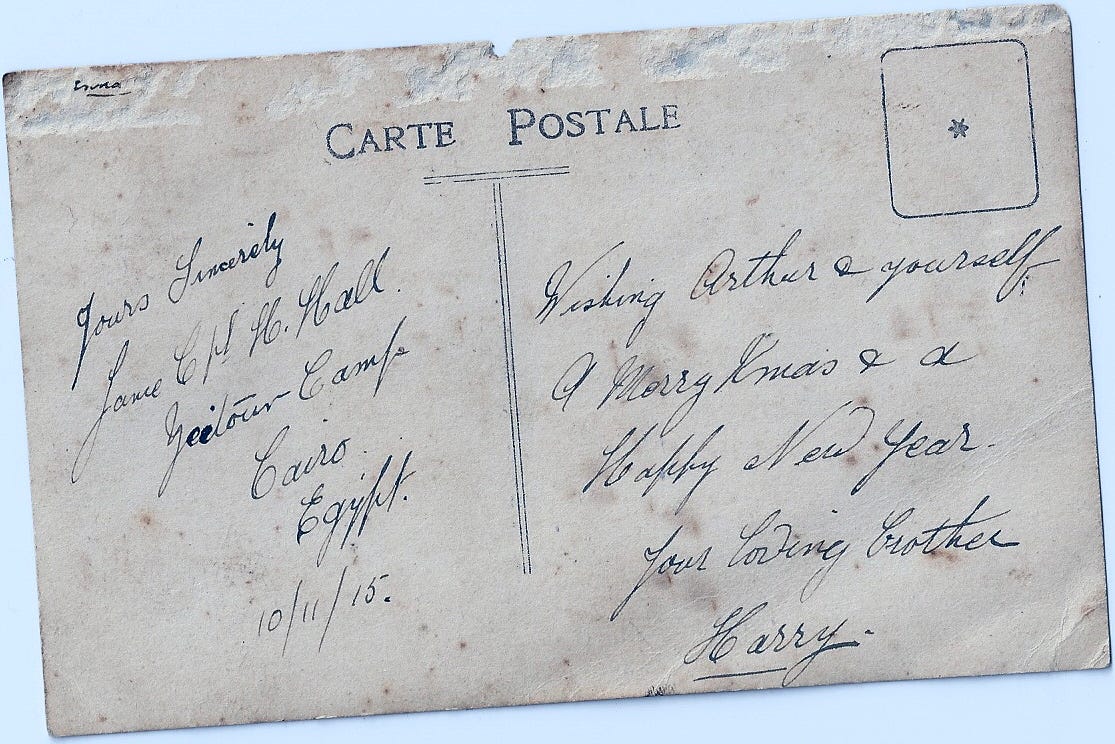 Emma
CARTE POSTALE
Yours Sincerely
Lance Cpl H. Hall.
Zeitoun Camp
Cairo.
Egypt.
10/11/15.
Wishing Arthur & yourself
A Merry Xmas & a
Happy New Year.
Your loving brother
Harry.